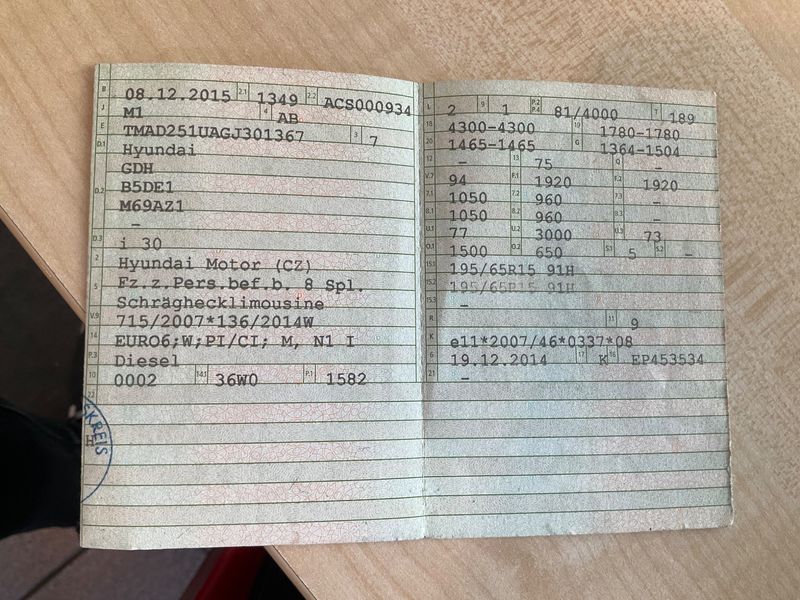 B 08.12.2015 2.1 1349 2.2 ACS000934
J M1 4 AB
E TMAD251UAGJ301367 3 7
D.1 Hyundai
GDH
D.2 B5DE1
M69AZ1
–
D.3 i 30
2 Hyundai Motor (CZ)
5 Fz.z.Pers.bef.b. 8 Spl.
Schräghecklimousine
V.9 715/2007*136/2014W
14 EURO6;W;PI/CI; M, N1 I
P.3 Diesel
10 0002 14.1 36W0 P.1 1582
22
KREIS
H
L 2 9 1 P.2 P.4 81/4000 T 189
18 4300-4300 19 1780-1780
20 1465-1465 G 1364-1504
12 – 13 75 Q –
V.7 94 F.1 1920 F.2 1920
7.1 1050 7.2 960 7.3 –
8.1 1050 8.2 960 8.3 –
U.1 77 U.2 3000 U.3 73
O.1 1500 O.2 650 S.1 5 S.2 –
15.1 195/65R15 91H
15.2 195/65R15 91H
15.3 –
R 11 9
K e11*2007/46*0337*08
6 19.12.2014 17 K 16 EP453534
21 –